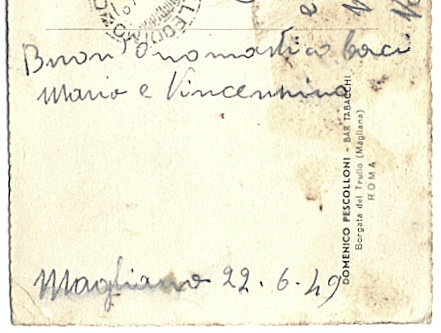 Buon onomastico baci
Mario e Vincenzina
Magliana 22.6.49
DOMENICO PESCOLLONI - BAR TABACCHI
Borgata del Trullo (Magliana)
ROMA